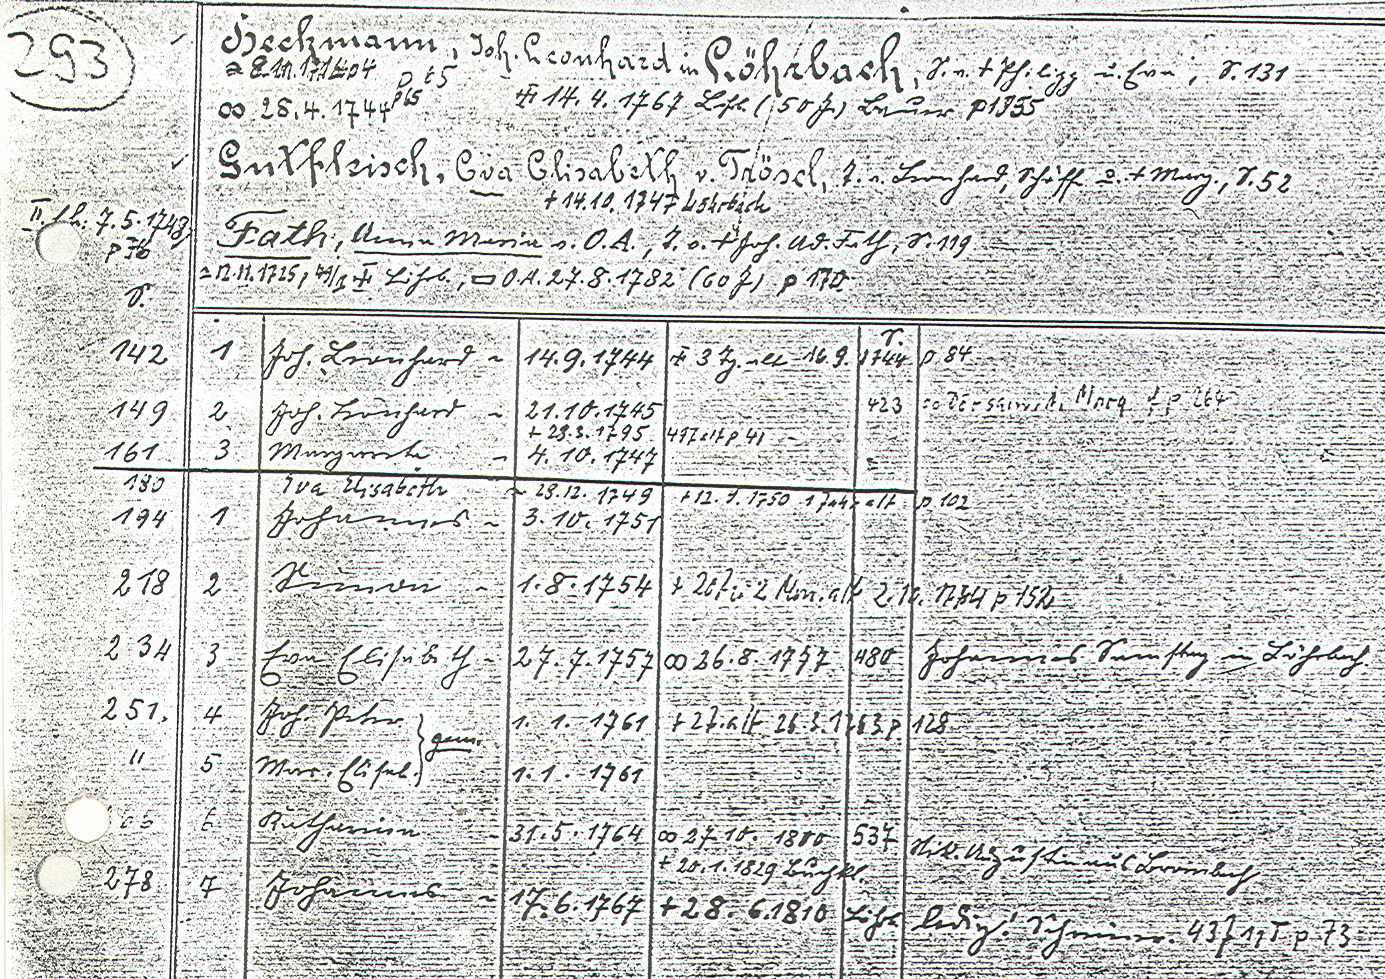 293
Heckmann, Joh. Leonhard in Löhrbach, S. v. + Philipp u. Eva, S. 131
p 65
∞ 28.4.1744 p 65 14.4.1767 Löhb (50 J.) Bauer p 1355
Gutfleisch, Eva Elisabeth v. Trösel, T. v. Leonhard, Schöff u. + Marg., S. 52
+ 14.10.1747 Löhrbach
II. Eh. 7.5.1748
p 76
Fath, Anna Maria v. O.A., T. v. + Joh. Ad. Fath, S. 119
~ 12.11.1725, Löhrb., O.A. 27.8.1782 (60 J) p 170
S. S.
142 1 Joh. Leonhard ~ 14.9.1744 3 Tg. alt 16.9. 1744 p 84
149 2 Joh. Leonhard ~ 21.10.1745 423 ∞ Marg. p 264
+ 23.3.1795 p 41
161 3 Margareta ~ 4.10.1747
180 Eva Elisabeth ~ 29.12.1749 + 12.1.1750 alt p 102
194 1 Johannes ~ 3.10.1751
218 2 Simon ~ 1.8.1754 + 20 J u 2 Mon. alt 2.10. p 152
234 3 Eva Elisabeth ~ 27.7.1757 ∞ 26.8.1777 480 Johannes Samstag in Löhrbach
251. 4 Joh. Peter } gem. 1.1.1761 + 2 J. alt 26.3.1763 p 128
" 5 Mar. Elisab. 1.1.1761
6 Katharina ~ 31.5.1764 ∞ 27.10.1800 537 Nik. Augustin aus Brombach
+ 20.1.1829 Buchkl.
278 7 Johannes ~ 17.6.1767 + 28.6.1810 Löhrb ledig! Schreiner. 43 J 11 T p 73